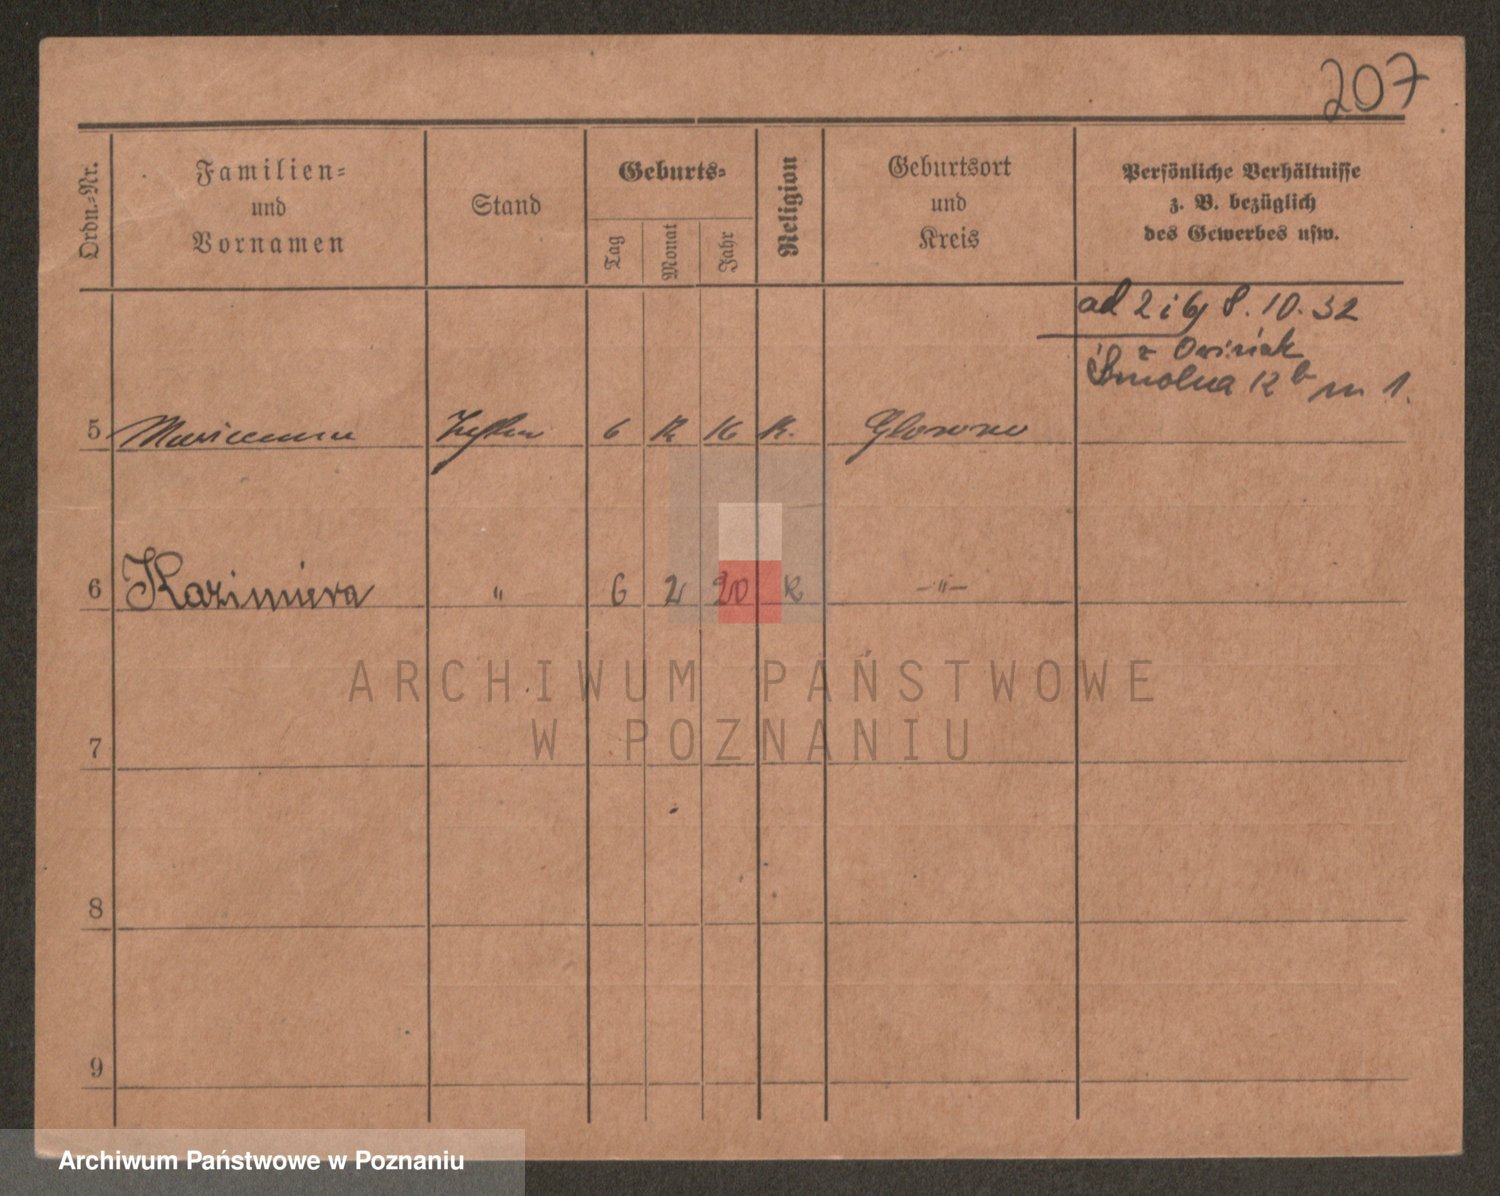 207
Ordn.-Nr.
Familien-
und
Vornamen
Stand
Geburts-
Tag
Monat
Jahr
Religion
Geburtsort
und
Kreis
Persönliche Verhältnisse
z. B. bezüglich
des Gewerbes usw.
ad 2 i 6) 8. 10. 32
z Owinsk
Smolna 12 b m 1.
5 Marianna 6 12 16 k. Glowno
6 Kazimiera " 6 2 20 k —"—
ARCHIWUM PAŃSTWOWE
W POZNANIU
7
8
9
Archiwum Państwowe w Poznaniu